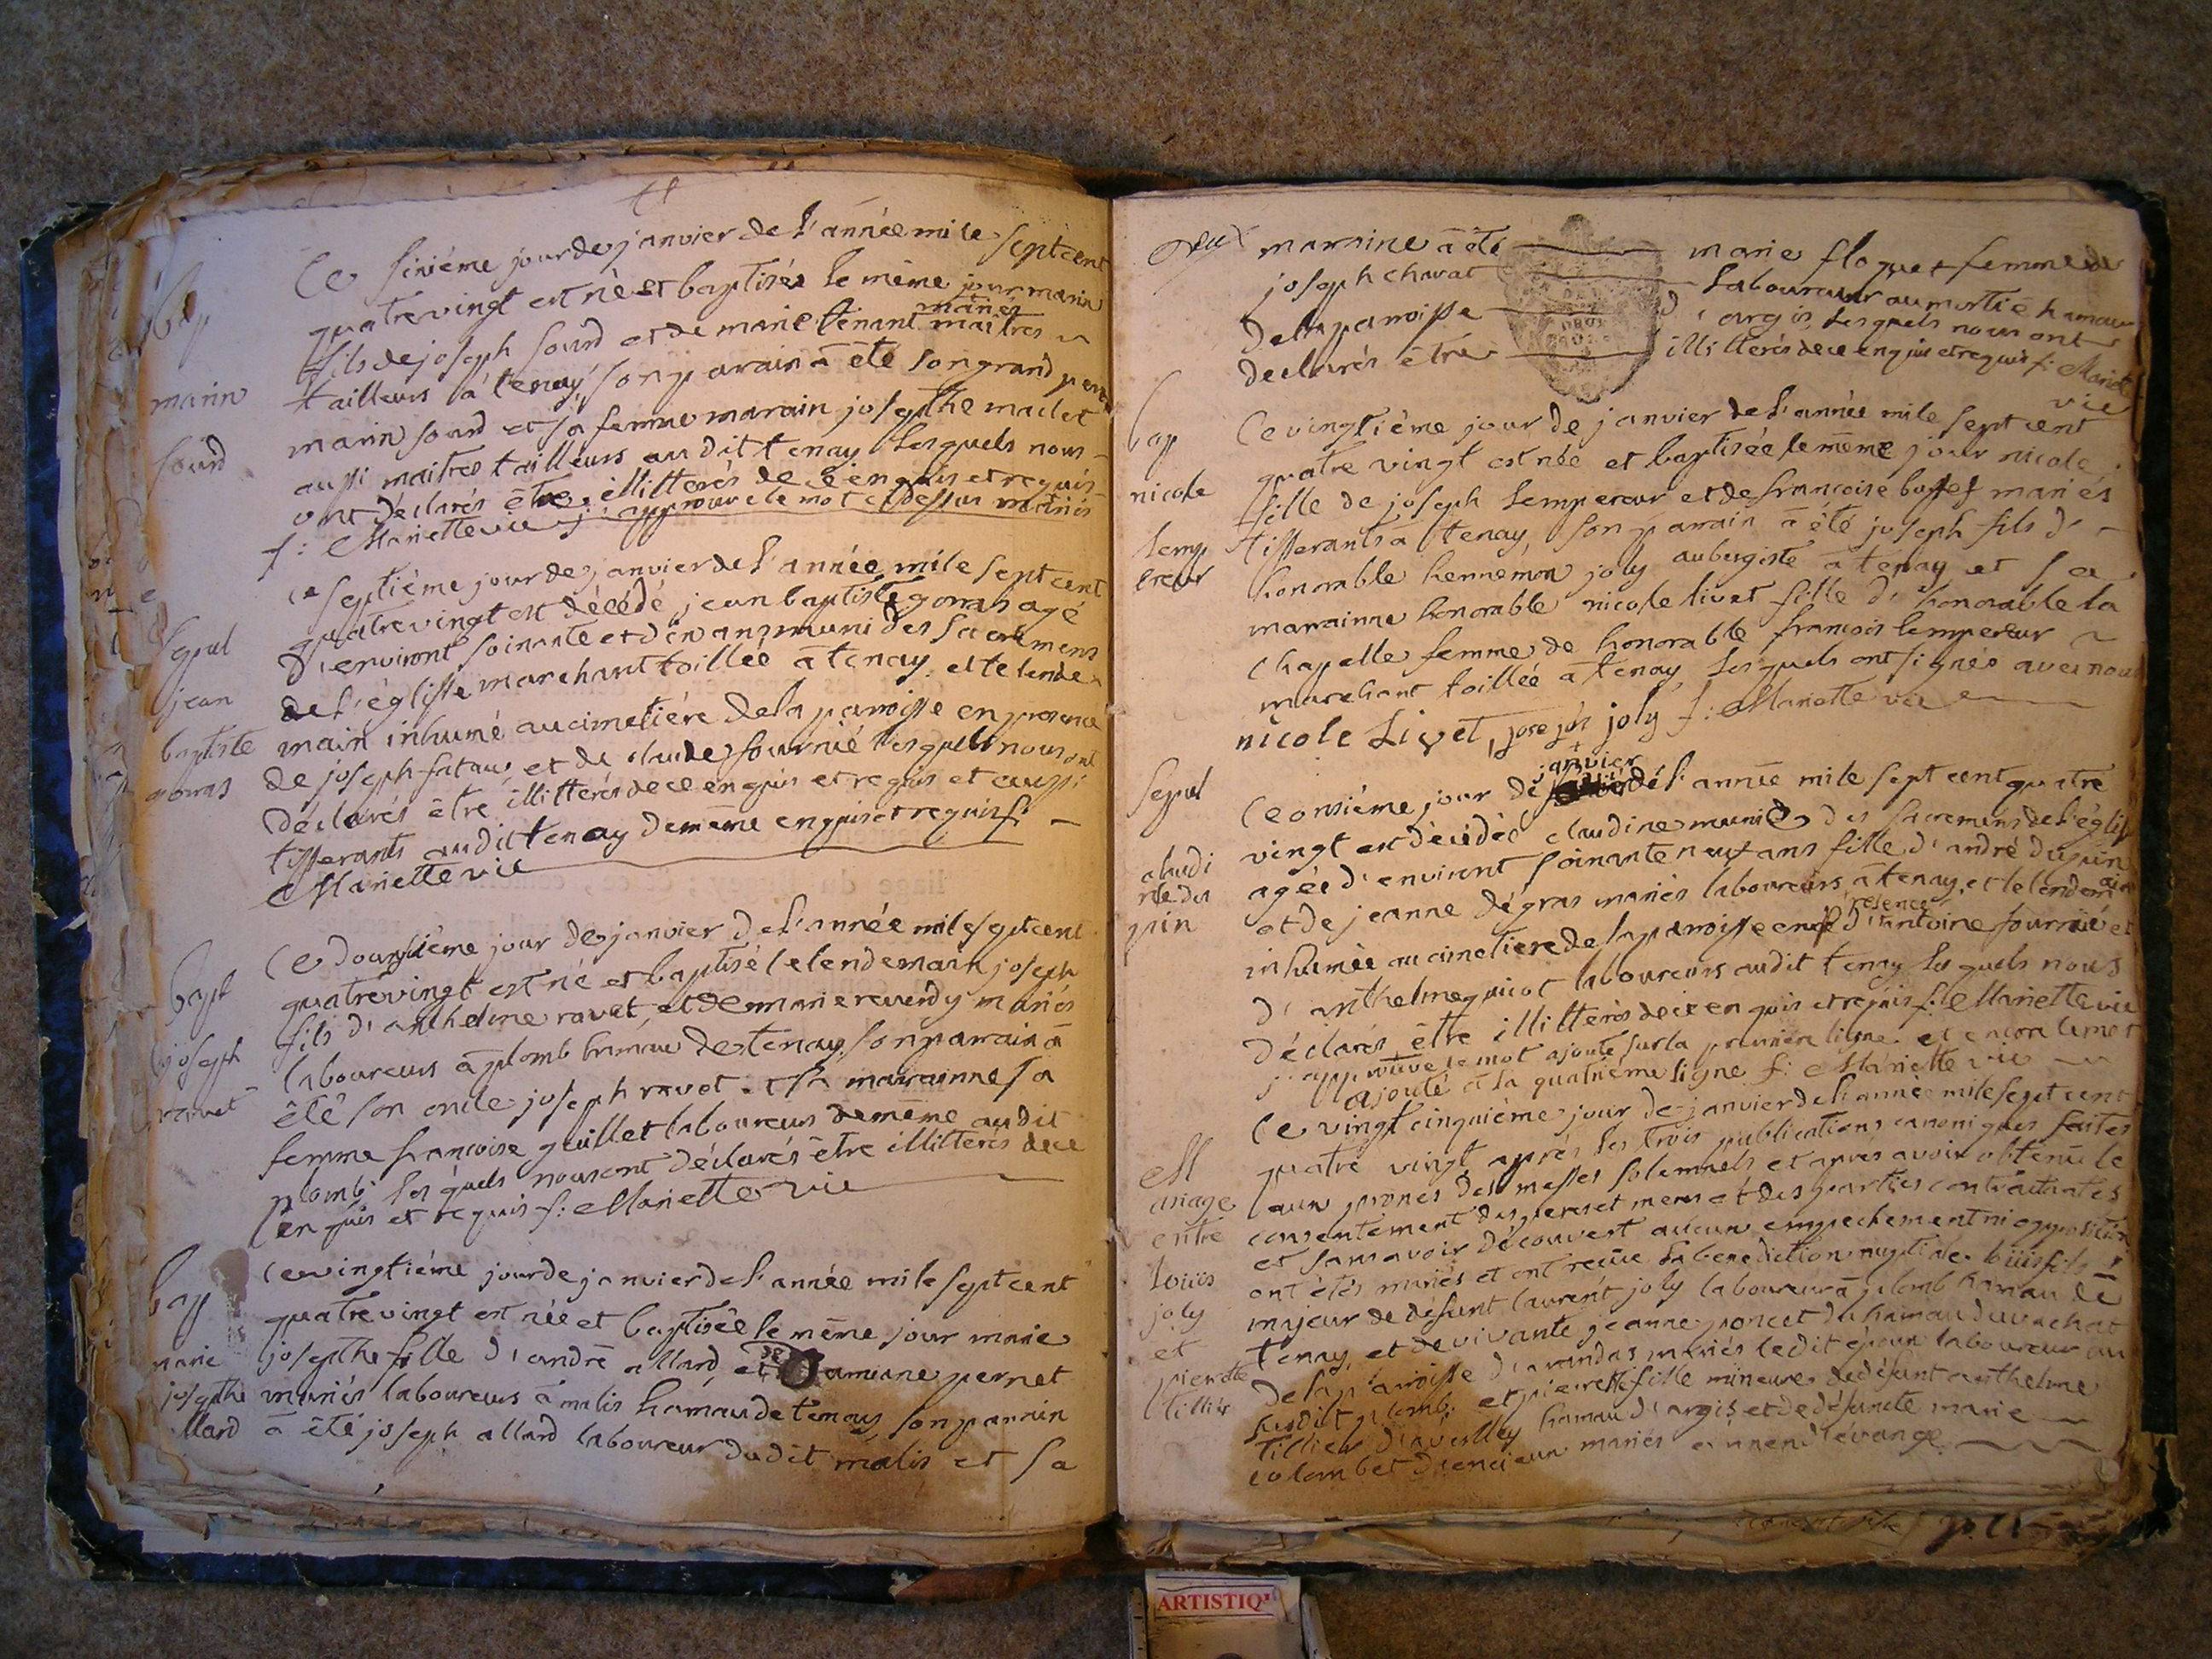 bap
marin
sourd
Ce sixiéme jour de janvier de l'année mile sept cent
quatre vingt est né et baptisée le même jour marin
mariés
fils de joseph sourd et de marie tenant maitres
tailleurs à tenay, son parain à été son grand pere
marin sourd et sa femme marain josepthe maclet
aussi maitres tailleurs au dit tenay lesquels nous
ont déclarés être illitterés de ce enquis et requis
f: Mariette vic j'approuve le mot cy dessus mariés
Sepul
jean
baptiste
goras
Ce septiéme jour de janvier de l'année mile sept cent
quatre vingt est décédé jean baptiste goras agé
d'environt soixante et dix ans muni des sacremens
de l'églisse marchant toillée à tenay. et le lende
main inhumé au cimetiére de la paroisse en presence
de joseph fataux et de claude fournié lesquels nous ont
déclarés être illitterés de ce enquis et requis et aussi
tisserants au dit tenay de même enquis et requis f:
Mariette vic
bapt
joseph
ravet
Ce douzieme jour de janvier de l'année mile sept cent
quatre vingt est né et baptisé le lendemain joseph
fils d'anthelme ravet, et de marie reverdy mariés
laboureurs à plomb hamau de tenay. son parain à
été son oncle joseph ravet. et sa marainne sa
femme francoise guillet laboureurs de même au dit
plomb. lesquels nous ont déclarés être illitterés de ce
enquis et requis f: Mariette vic
bap
marie
josepthe
allard
Ce vingtiéme jour de janvier de l'année mile sept cent
quatre vingt est née et baptisée le même jour marie
josepthe fille d'andré allard, et de pernet
mariés laboureurs à malis hamau de tenay, son parain
à été joseph allard laboureur du dit malis et sa
deux
maraine à été marie floquet femme de
joseph charat laboureur au mortié hamau
de la paroisse d'argis, lesquels nous ont
declarés être illitterés de ce enquis et requis f: Mariette
vic
bap
nicole
lemp
ereur
Ce vingtiéme jour de janvier de l'année mile sept cent
quatre vingt est née et baptisée le même jour nicole
fille de joseph lempereur et de francoise bossef mariés
tisserants à tenay, son parain à été joseph fils d'
honorable hennemon joly aubergiste à tenay et sa
marainne honorable nicole livet fille d'honorable la
chapelle femme de honorable francois lempereur
marchant toillée à tenay lesquels ont signés avec nous
nicole Livet, josepjs joly f: Mariette vic
Sepul
claudi
ne du
pin
janvier
Ce onsiéme jour de de l'année mile sept cent quatre
vingt est décédée claudine munie des sacremens de l'églisse
agée d'environt soixante neuf ans fille d'andré dupin
et de jeanne dégras mariés laboureurs à tenay, et le lendemain
inhumée au cimetiere de la paroisse en presence d'antoine fournié et
d'anthelme guiot laboureurs au dit tenay lesquels nous
déclarés être illitterés de ce enquis et requis f: Mariette vic
j'approuve le mot ajouté sur la premiere ligne et encore le mot
ajouté à la quatrieme ligne f: Mariette vic
M
ariage
entre
loüis
joly
et
pierrette
tillier
Ce vingt cinquiéme jour de janvier de l'année mile sept cent
quatre vingt, aprés les trois publications canoniques faites
aux prones des messes solemnels et aprés avoir obtenu le
consentement des peres et meres et des parties contractantes
et sans avoir découvert aucun empechement ni opposition
ont étés mariés et ont recüe la benediction nuptiale loüis fils
majeur de défunt laurent joly laboureur à plomb hamau de
tenay, et de vivante jeanne poncet du hamau du vachat
de la paroisse d'arandas, mariés le dit époux laboureur au
susdit plomb. et pierrette fille mineure de défunt anthelme
tillier hamau d'argis et de défuncte marie
colombet d'encieux mariés